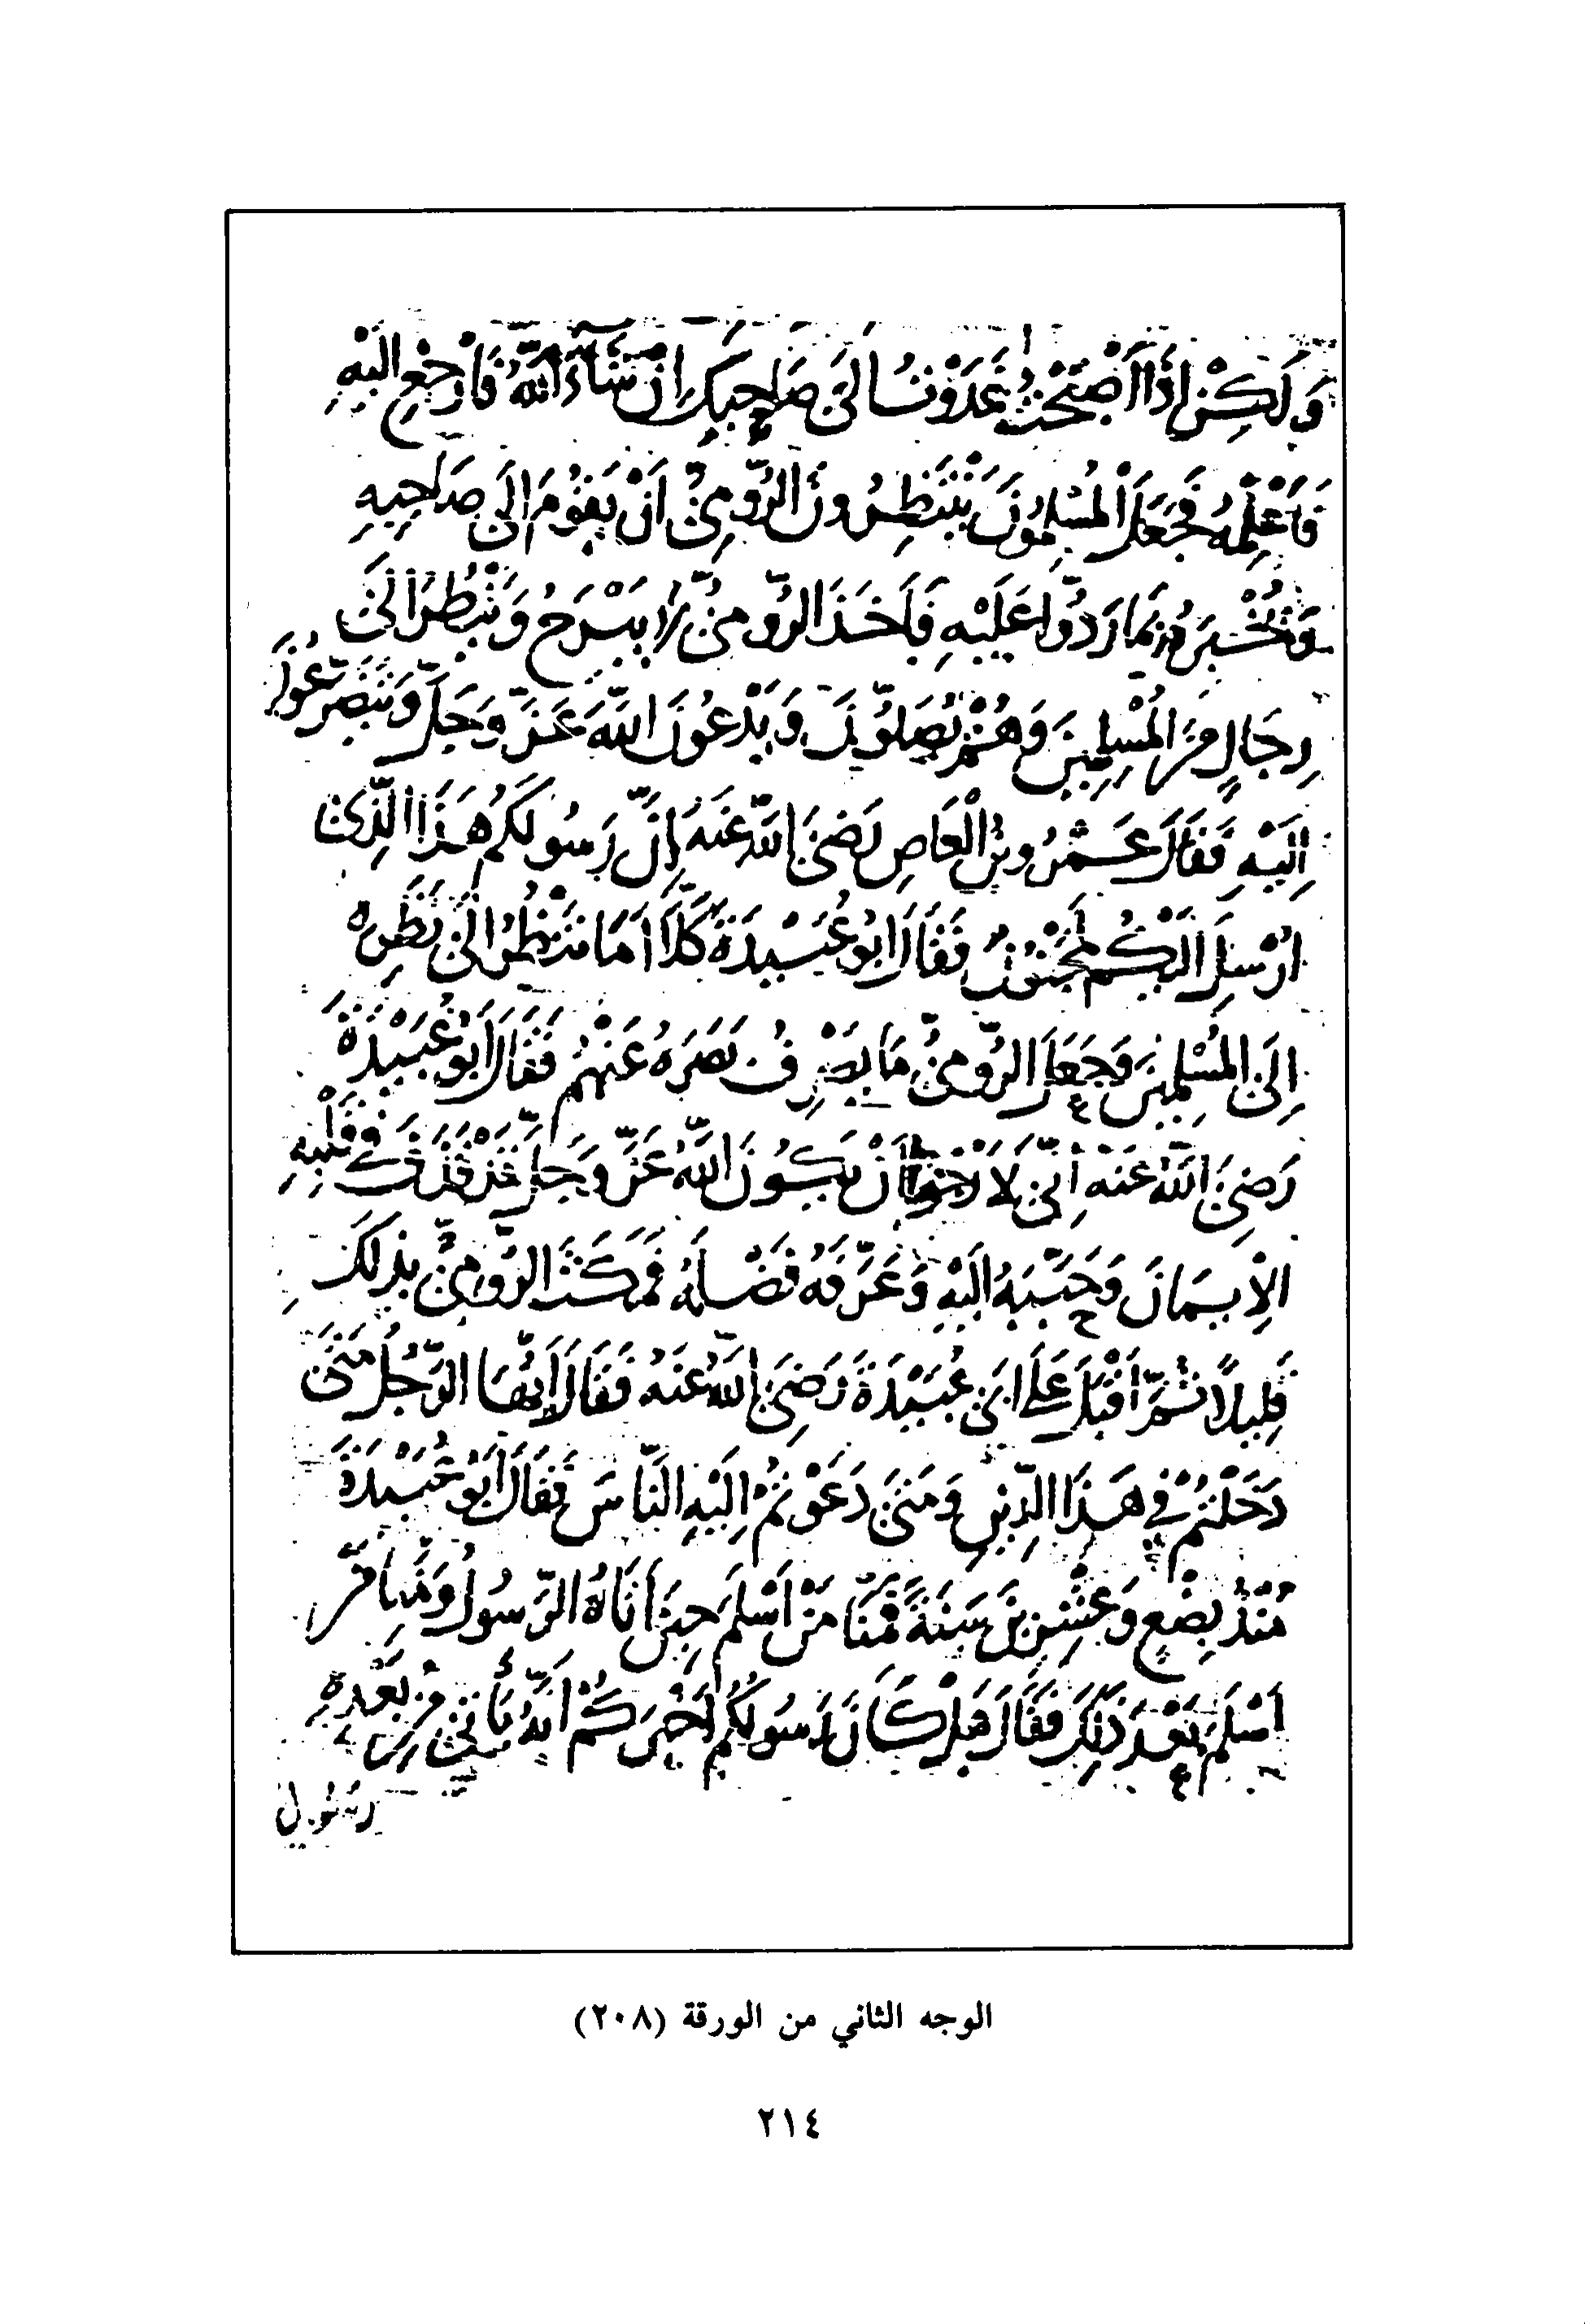 وَلَكِنْ اِذَا اَصْبَحْتُ غَدَوْتُ اِلَى صَاحِبِكَ اِنْ شَآءَ اللّٰهُ فَارْجِعْ اِلَيْهِ
فَأَعْلِمْهُ فَجَعَلَ الْمُسْلِمُونَ يَنْتَظِرُونَ الرُّومِيَّ اَنْ يَقُومَ اِلَى صَاحِبِهِ
وَيُخْبِرَهُ بِمَا رَدُّوا عَلَيْهِ فَاَخَذَ الرُّومِيُّ لَا يَبْرَحُ وَيَنْظُرُ اِلَى
رِجَالٍ مِنَ الْمُسْلِمِينَ وَهُمْ يُصَلُّونَ وَيَدْعُونَ اللّٰهَ عَزَّ وَجَلَّ وَيَتَضَرَّعُونَ
اِلَيْهِ فَقَالَ عَمْرُو بْنُ الْعَاصِ رَضِيَ اللّٰهُ عَنْهُ اِنَّ رَسُولَكُمْ هَذَا الَّذِي
اُرْسِلَ اِلَيْكُمْ لَمَجْنُونٌ فَقَالَ اَبُو عُبَيْدَةَ كَلَّا اَمَا تَنْظُرُ اِلَى نَظَرِهِ
اِلَى الْمُسْلِمِينَ وَجَعَلَ الرُّومِيُّ مَا يَصْرِفُ بَصَرَهُ عَنْهُمْ فَقَالَ اَبُو عُبَيْدَةَ
رَضِيَ اللّٰهُ عَنْهُ اِنِّي لَاَرْجُو اَنْ يَكُونَ اللّٰهُ عَزَّ وَجَلَّ قَدْ قَذَفَ فِي قَلْبِهِ
الْاِيمَانَ وَحَبَّبَهُ اِلَيْهِ وَعَرَّفَهُ فَضْلَهُ فَمَكَثَ الرُّومِيُّ بِذَلِكَ
قَلِيلًا ثُمَّ اَقْبَلَ عَلَى اَبِي عُبَيْدَةَ رَضِيَ اللّٰهُ عَنْهُ فَقَالَ اَيُّهَا الرَّجُلُ مَتَى
دَخَلْتُمْ فِي هَذَا الدِّينِ وَمَتَى دَعَوْتُمْ اِلَيْهِ النَّاسَ فَقَالَ اَبُو عُبَيْدَةَ
مُنْذُ بِضْعٍ وَعِشْرِينَ سَنَةً فَمِنَّا مَنْ اَسْلَمَ حِينَ اَتَاهُ الرَّسُولُ وَمِنَّا مَنْ
اَسْلَمَ بَعْدَ ذَلِكَ فَقَالَ هَلْ كَانَ رَسُولُكُمْ اَخْبَرَكُمْ اَنَّهُ يَأْتِي مِنْ بَعْدِهِ
رسول
الوجه الثاني من الورقة (٢٠٨)
٢١٤